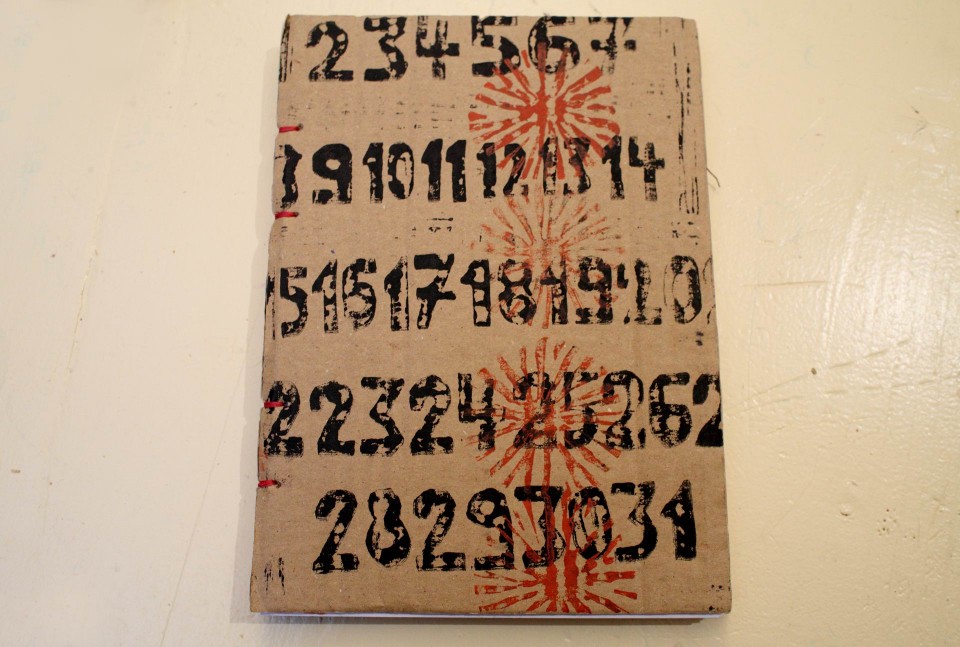 2 3 4 5 6 7
9 10 11 12 13 14
15 16 17 18 19 20
2 23 24 25 26 2
28 29 30 31